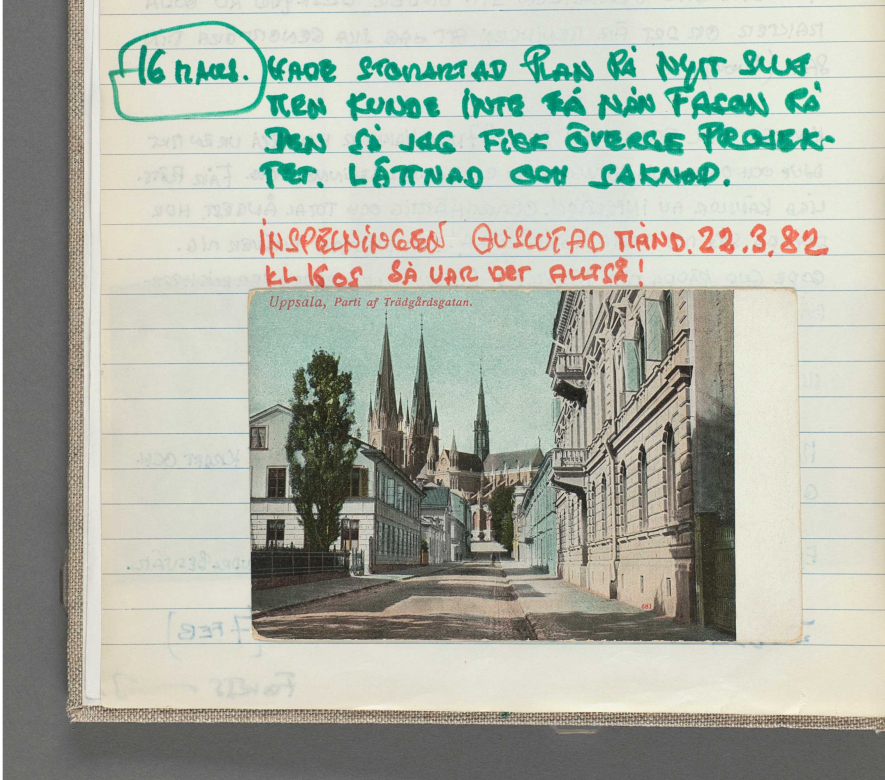 16 MARS. HADE STORARTAD PLAN PÅ NYTT SLUT
MEN KUNDE INTE FÅ NÅN FACON PÅ
DEN SÅ JAG FICK ÖVERGE PROJEK-
TET. LÄTTNAD OCH SAKNAD.
INSPELNINGEN AVSLUTAD MÅND. 22.3.82
KL SÅ VAR DET ALLTSÅ!
Uppsala, Parti af Trädgårdsgatan.
681